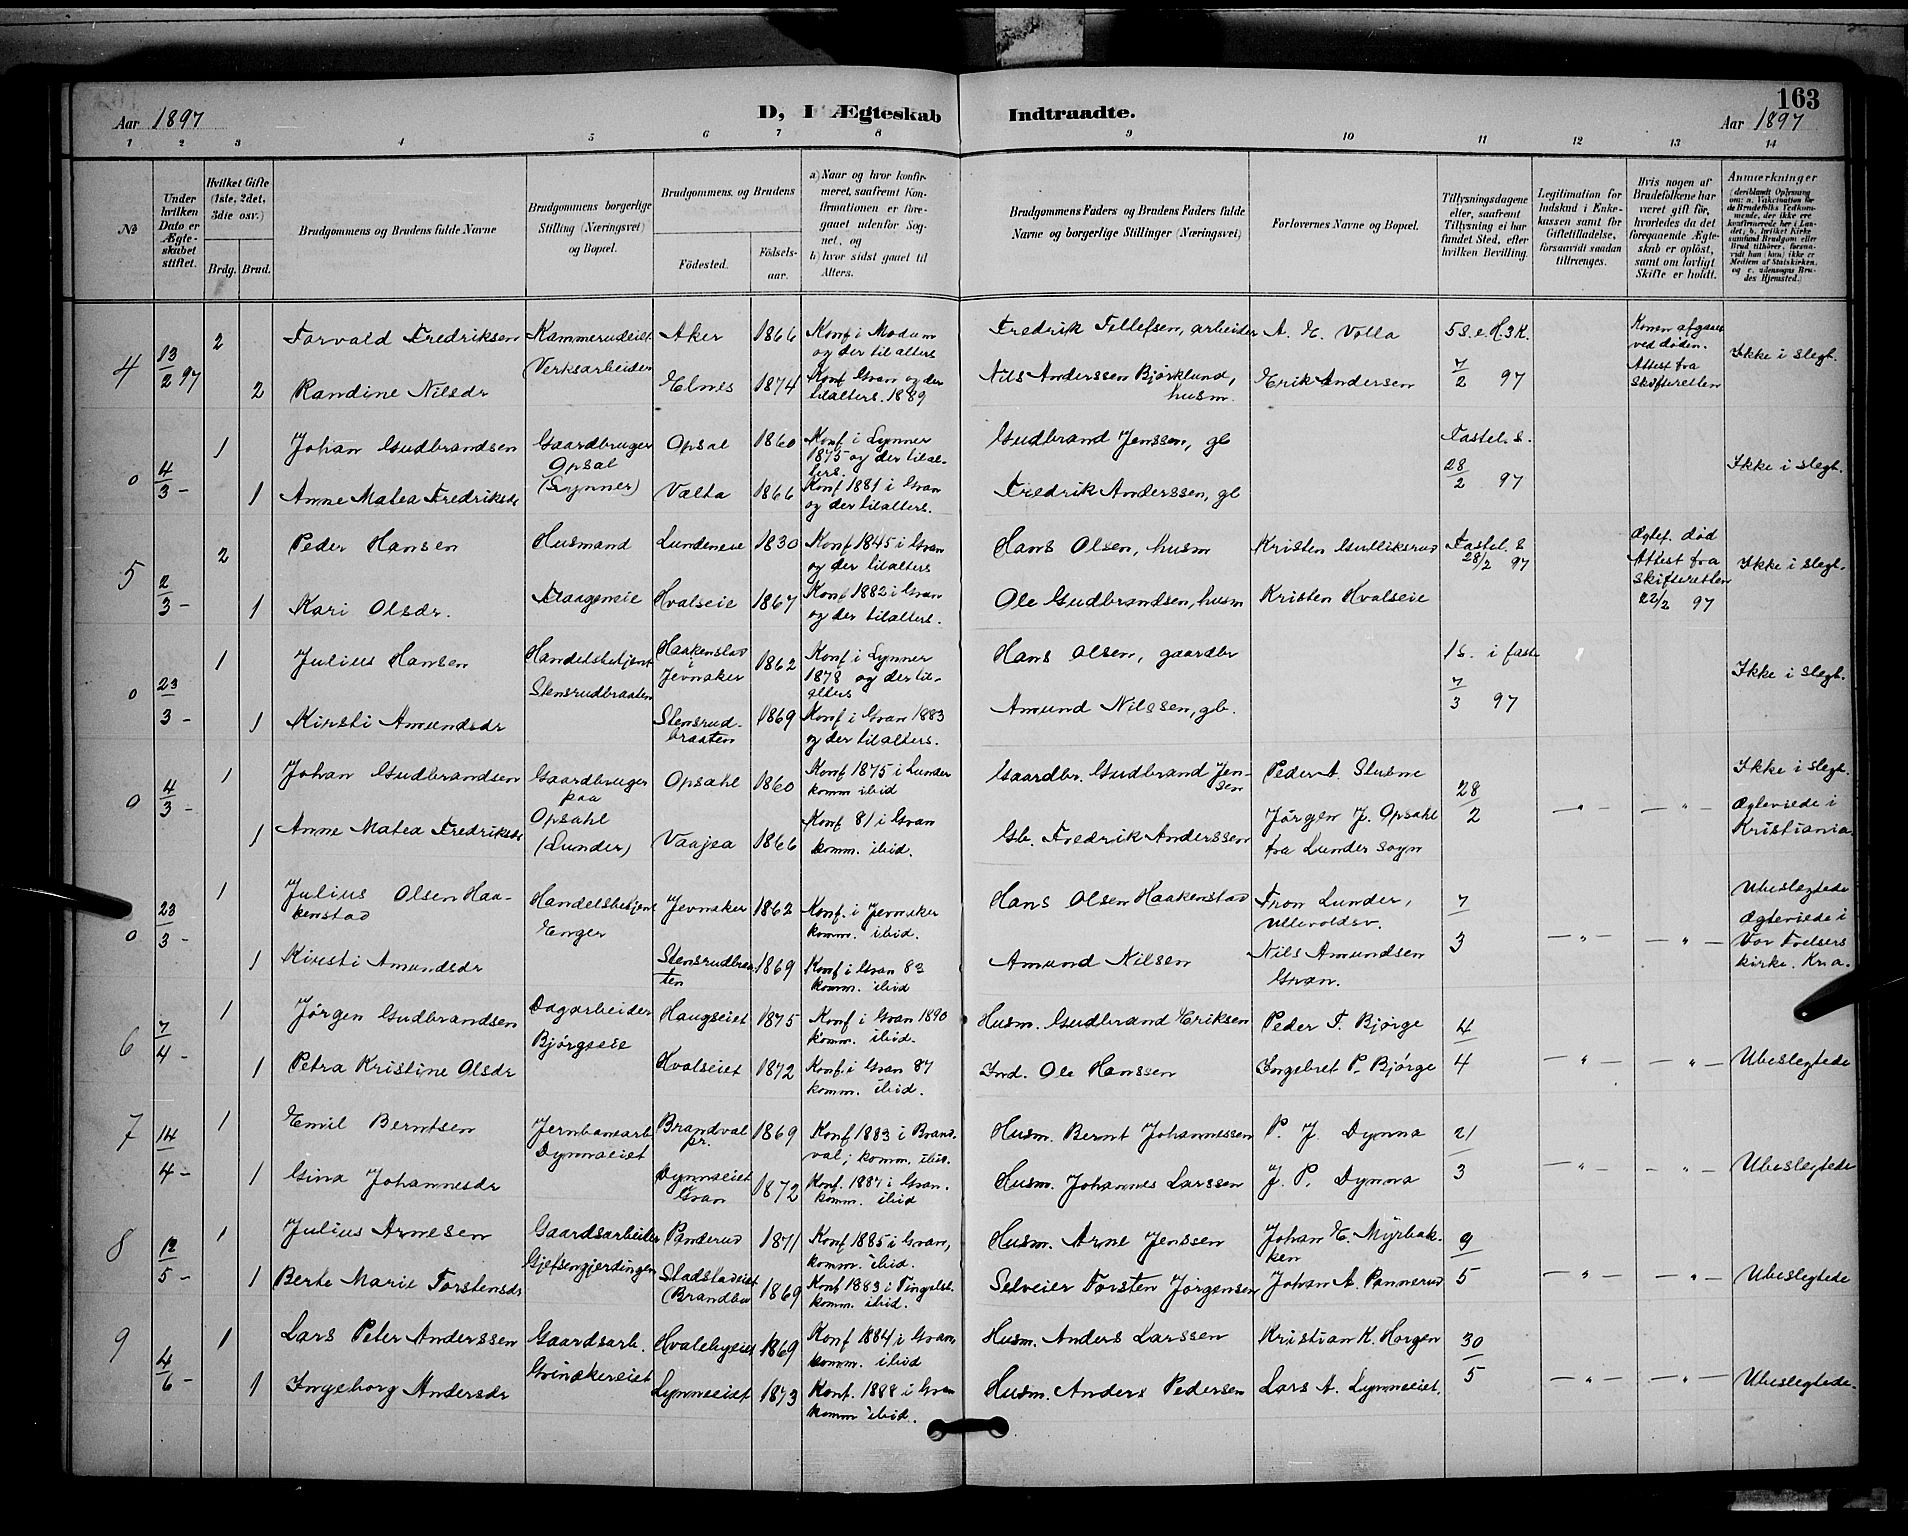 163
Aar 1897
D, I Ægteskab
Indtraadte.
Aar 1897
1 2 3 4 5 6 7 8 9 10 11 12 13 14
№
Under hvilken Dato er Ægteskabet stiftet.
Hvilket Gifte (1ste, 2det, 3die osv.)
Brdg. Brud.
Brudgommens og Brudens fulde Navne
Brudgommens borgerlige Stilling (Næringsvei) og Bopæl.
Brudgommens og Brudens
Fødested.
Fødselsaar.
a) Naar og hvor konfirmeret, saafremt Konfirmationen er foregaaet udenfor Sognet, og
b) hvor sidst gaaet til Alters.
Brudgommens Faders og Brudens Faders fulde Navne og borgerlige Stillinger (Næringsvei)
Forlovernes Navne og Bopæl.
Tillysningsdagene eller, saafremt Tillysning ei har fundet Sted, efter hvilken Bevilling.
Legitimation for Indskud i Enkekassen samt for Giftetilladelse, forsaavidt saadan tiltrænges.
Hvis nogen af Brudefolkene har været gift før, hvorledes da det foregaaende Ægteskab er opløst, samt om lovligt Skifte er holdt.
Anmærkninger
4 13/2 97 2 Torvald Fredriksen Kammerudeiet Aker 1866 Konf i Modum og der til alters Fredrik Tellefsen, arbeider A. E. Volla 5 S. e. H. 3 K. Konen afgaaet ved døden. Ikke i slegt.
2 Randine Nilsdr Verksarbeider Elnes 1874 Konf Gran og der tilalters. 1889 Nils Anderssen Bjørklund, husm. Erik Andersen 7/2 97 Attest fra skifteretten
0 4/3 - 1 Johan Gudbrandsen Gaardbruger Opsal (Lynner) Opsal 1860 Konf. i Lynner 1875 og der tilalters. Gudbrand Jenssen, gb Fastel. s. Ikke i slegt.
1 Anne Matea Fredriksdr Vælta 1866 Konf 1881 i Gran og der tilalters. Fredrik Anderssen, gb 28/2 97
5 2/3 - 2 Peder Hansen Husmand Lundeneie 1830 Konf 1845 i Gran og der tilalters Hans Olsen, husm Kristen Gulliksrud Fastel. s 28/2 97 Ægtef. død Attest fra skifteretten 22/2 97 Ikke i slegt.
1 Kari Olsdr. Hvalseie 1867 Konf 1882 i Gran og der tilalters. Ole Gudbrandsen, husm Kristen Hvalseie
0 23/3 - 1 Julius Hansen Handelsbetjent Stensrudbraaten Haakenstad i Jevnaker 1862 Konf i Lynner 1878 og der tilalters Hans Olsen, gaardbr 1 S. i faste Ikke i slegt.
1 Kirsti Amundsdr Stensrudbraaten 1869 Konf i Gran 1883 og der tilalters. Amund Nilssen, gb. 7/3 97
0 4/3 - 1 Johan Gudbrandsen Gaardbruger paa Opsahl (Lunder) Opsahl 1860 Konf 1875 i Lunder komm ibid Gaardbr. Gudbrand Jensen Peder A. Slusne 28/2 — " — — " — Ikke i slegt. Ægteviede i Kristiania.
1 Anne Matea Fredriksdr Vaajsa 1866 Konf 81 i Gran komm. ibid. Gb. Fredrik Anderssen Jørgen J. Opsahl fra Lunder sogn
0 23/3 - 1 Julius Olsen Haakenstad Handelsbetjent Enger Jevnaker 1862 Konf. i Jevnaker komm. ibid. Hans Olsen Haakenstad Tron Lunder, Ullevoldsv. 7/3 — " — — " — Ubeslegtede Ægteviede i Vor Frelsers kirke. Kr.a.
1 Kirsti Amundsdr Stensrudbraaten 1869 Konf i Gran 83 komm. ibid Amund Nilsen Nils Amundsen Gran.
6 7/4 - 1 Jørgen Gudbrandsen Dagarbeider Bjørgseie Haugseiet 1875 Konf i Gran 1890 komm. ibid. Husm. Gudbrand Eriksen Peder T. Bjørge 4/4 — " — — " — Ubeslegtede
1 Petra Kristine Olsdr Hvalseiet 1872 Konf. i Gran 87 komm. ibid. Ind. Ole Hanssen Ingebret P. Bjørge
7 14/4 - 1 Emil Berntsen Jernbanearb Dynnaeiet Brandval pr. 1869 Konf 1883 i Brandval; komm. ibid. Husm. Bernt Johannessen P. J. Dynna 21/3 — " — — " — Ubeslegtede
1 Gina Johannesdr Dynnaeiet Gran 1872 Konf. 1887 i Gran. komm. ibid Husm. Johannes Larssen J. P. Dynna
8 12/5 - 1 Julius Arnesen Gaardsarbeider Gjefsengjerdingen Panderud 1871 Konf 1885 i Gran, komm. ibid. Husm. Arne Jenssen Johan E. Myrbakken 9/5 — " — — " — Ubeslegtede
1 Berte Marie Torstensdr Stadstadeiet (Brandbu 1869 Konf 1883 i Tingelst. komm. ibid. Selveier Torsten Jørgensen Johan A. Pannerud
9 4/6 - 1 Lars Peter Anderssen Gaardsarb. Grinakereiet Hvalebyeiet 1869 Konf 1884 i Gran, komm. ibid Husm. Anders Larssen Kristian K. Horgen 30/5 — " — — " — Ubeslegtede.
1 Ingeborg Andersdr Lynneeiet 1873 Konf. 1888 i Gran komm ibid. Husm. Anders Pedersen Lars A. Lynneeiet.